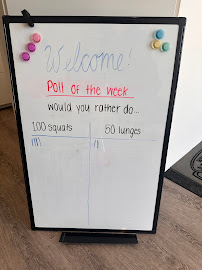 Welcome!
Poll of the week
would you rather do...
100 squats 50 lunges